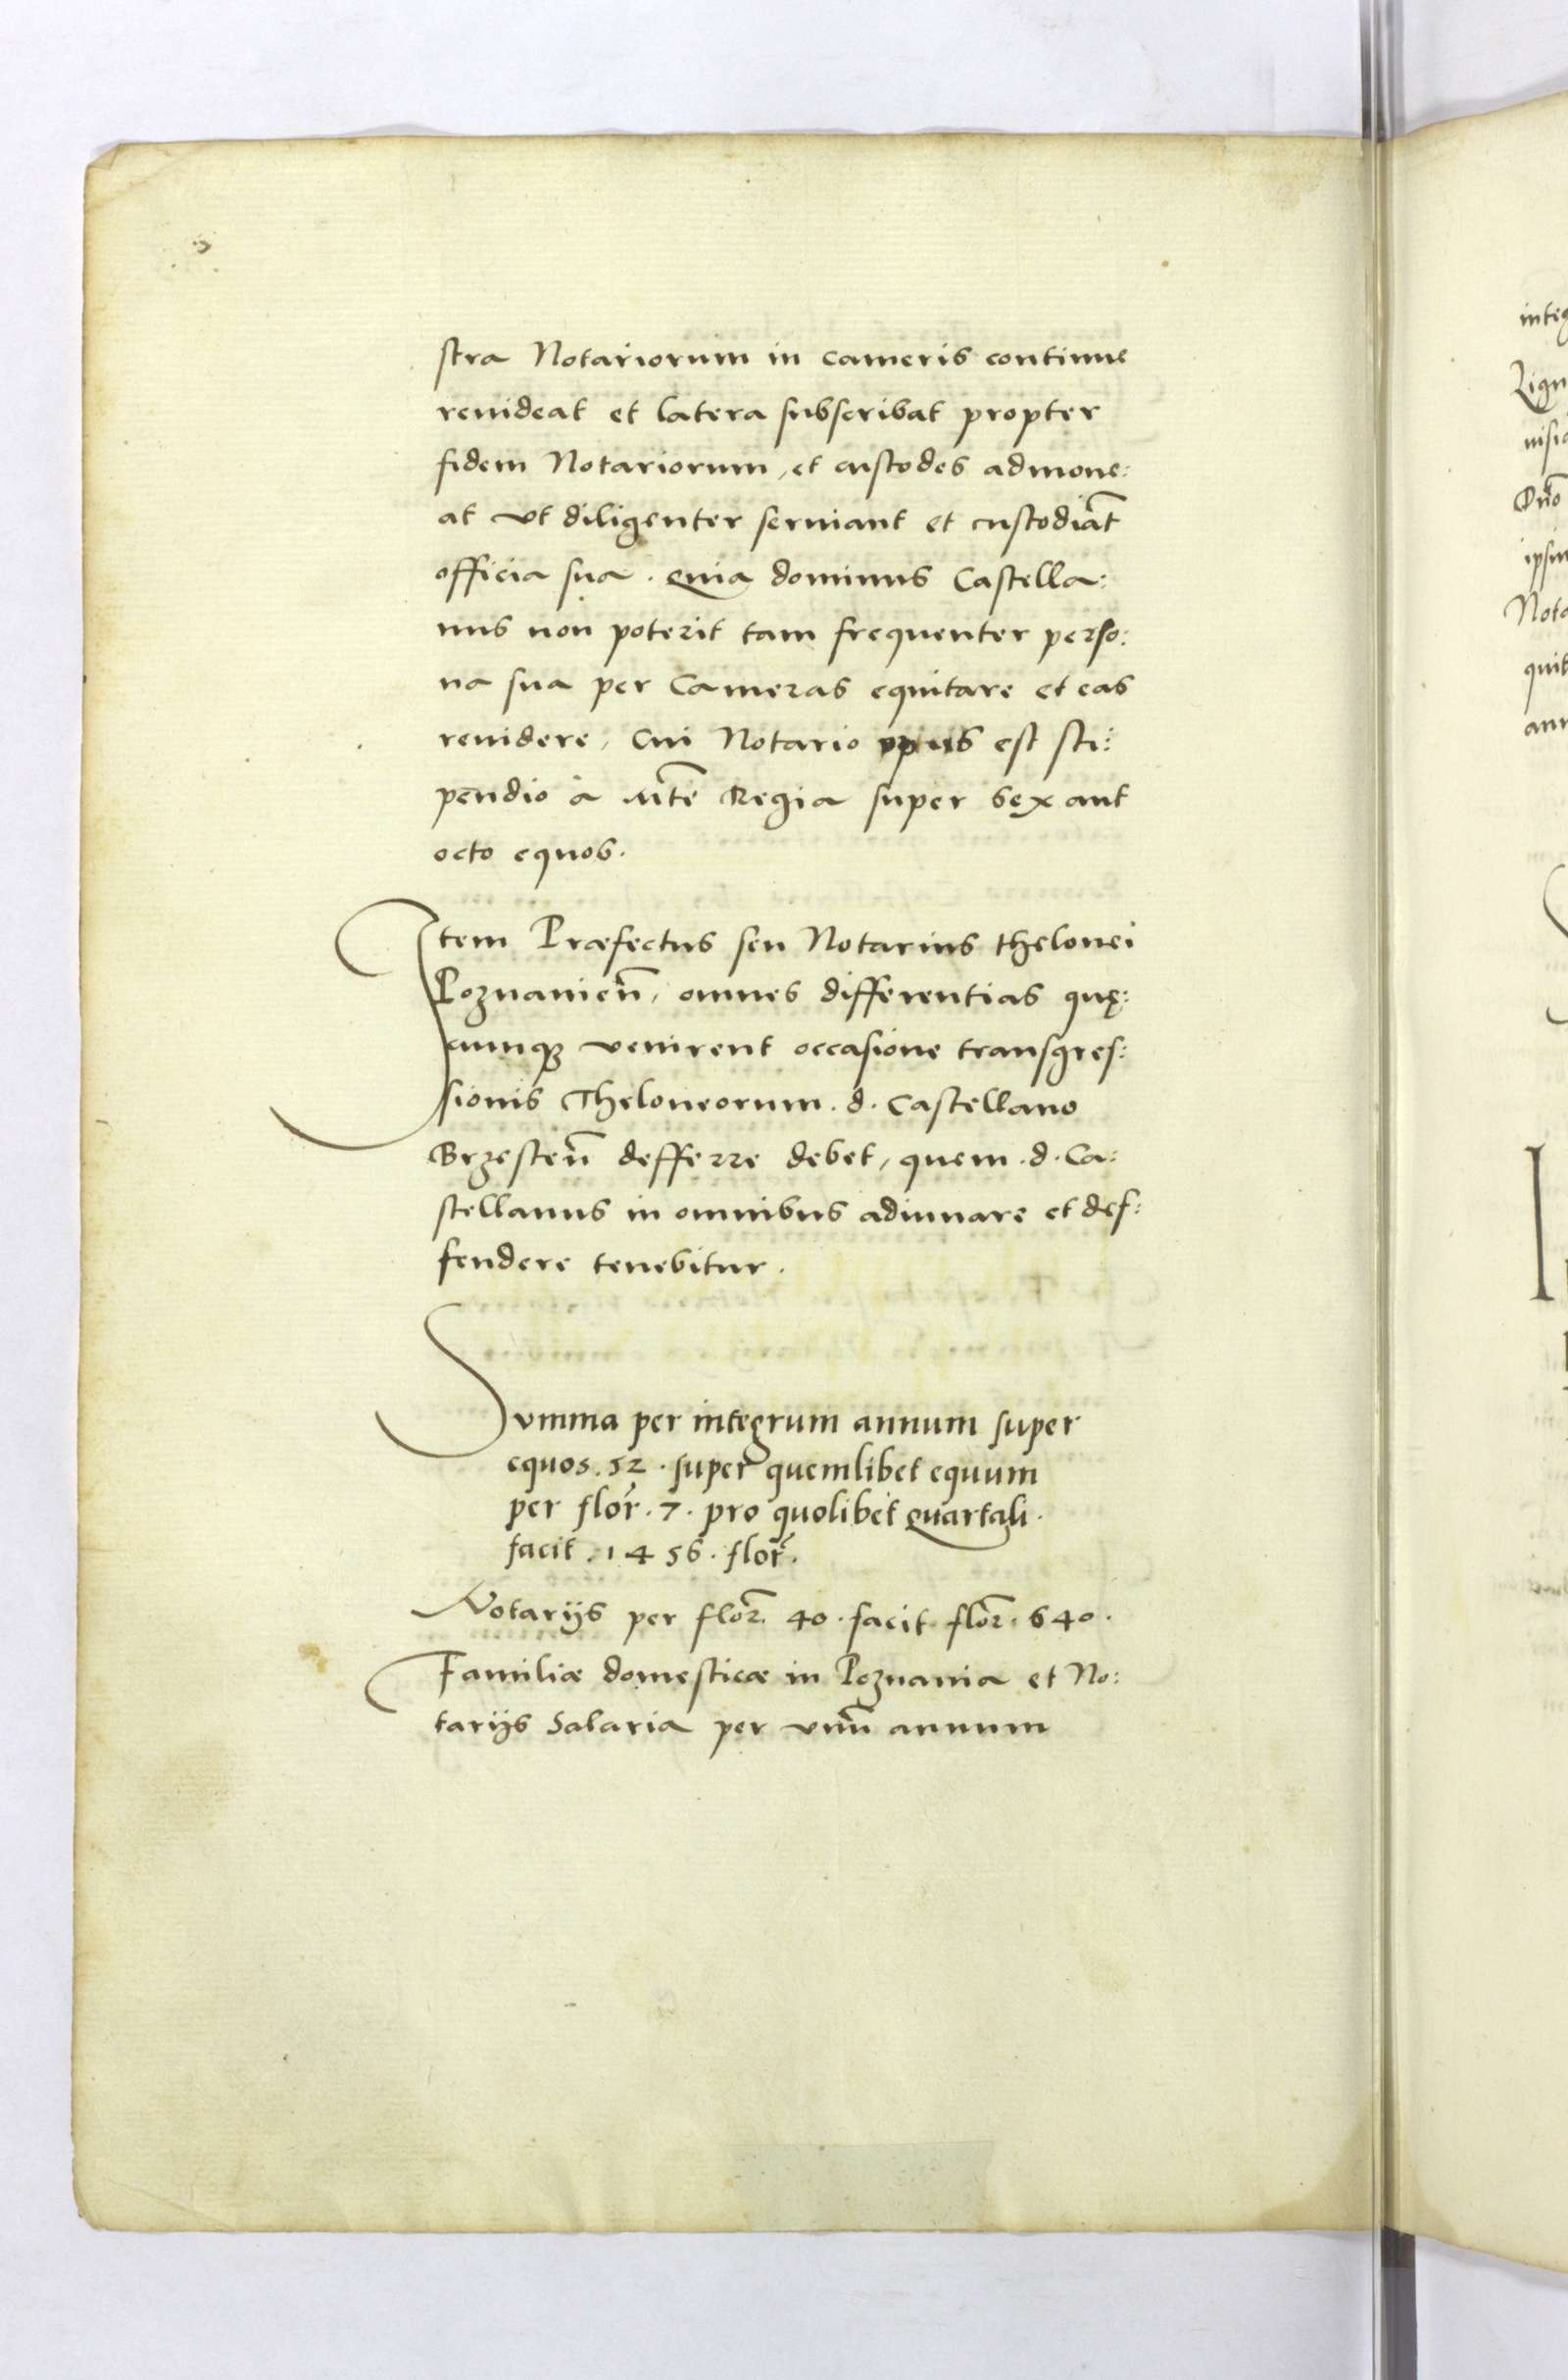 stra Notariorum in cameris continue
reuideat et latera subscribat propter
fidem Notariorum, et custodes admone:
at vt diligenter seruiant et custodiāt
officia sua. Quia dominus Castella:
nus non poterit tam frequenter perso:
na sua per Cameras equitare et eas
reuidere, Cui Notario opus est sti:
pendio à Mte Regia super sex aut
octo equos.
Item Præfectus seu Notarius thelonei
Poznanien̄, omnes differentias quę:
cunqȝ venirent occasione transgres:
sionis Theloneorum. d. Castellano
Brzesten̄ defferre debet, quem. d. Ca:
stellanus in omnibus adiuuare et def:
fendere tenebitur.
Summa per integrum annum super
equos. 52. super quemlibet equum
per flor̄. 7. pro quolibet quartali.
facit. 1456. flor̄.
Notarijs per flor̄. 40. facit flor̄. 640.
Familiæ domesticæ in Poznania et No:
tarijs Salaria per vnū annum
integ
Lign
nisi
Quō
ipsu
Nota
quib
ann